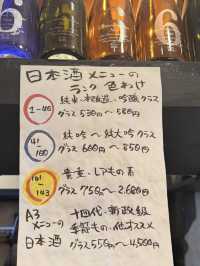 日本酒メニューの
ランク色わけ
1~40
純米・本醸造・吟醸クラス
グラス530円~580円
41~100
純吟~純大吟クラス
グラス600円~850円
101~143
貴重・レアもの系
グラス750~2,680円
A3
メニューの
日本酒
十四代・新政級
季節もの・他オススメ
グラス550~4,500円
6